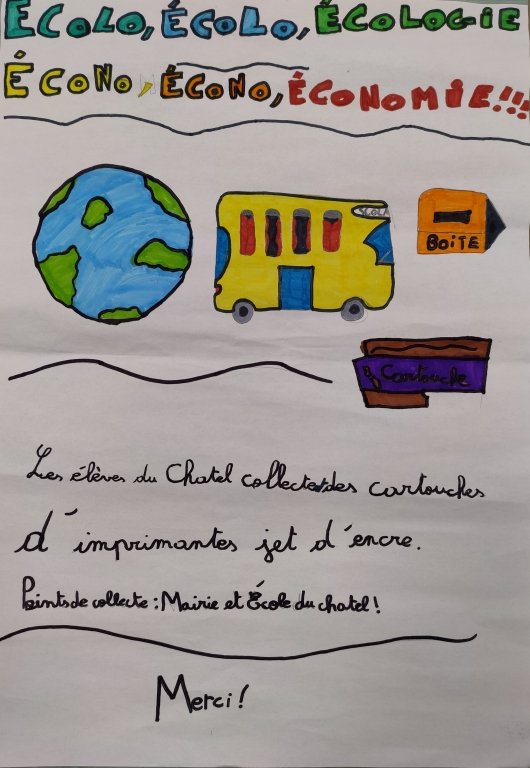 ÉCOLO, ÉCOLO, ÉCOLOGIE
ÉCONO, ÉCONO, ÉCONOMIE!!!
SCOLA
BOITE
Cartouche
Les élèves du Chatel collecte des cartouches
d'imprimantes jet d'encre.
Points de collecte : Mairie et École du chatel !
Merci !